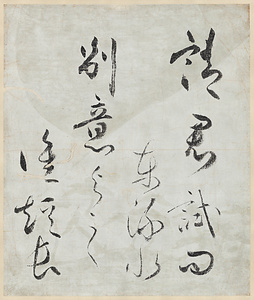 請君試問
東流水
別意與之
誰短長